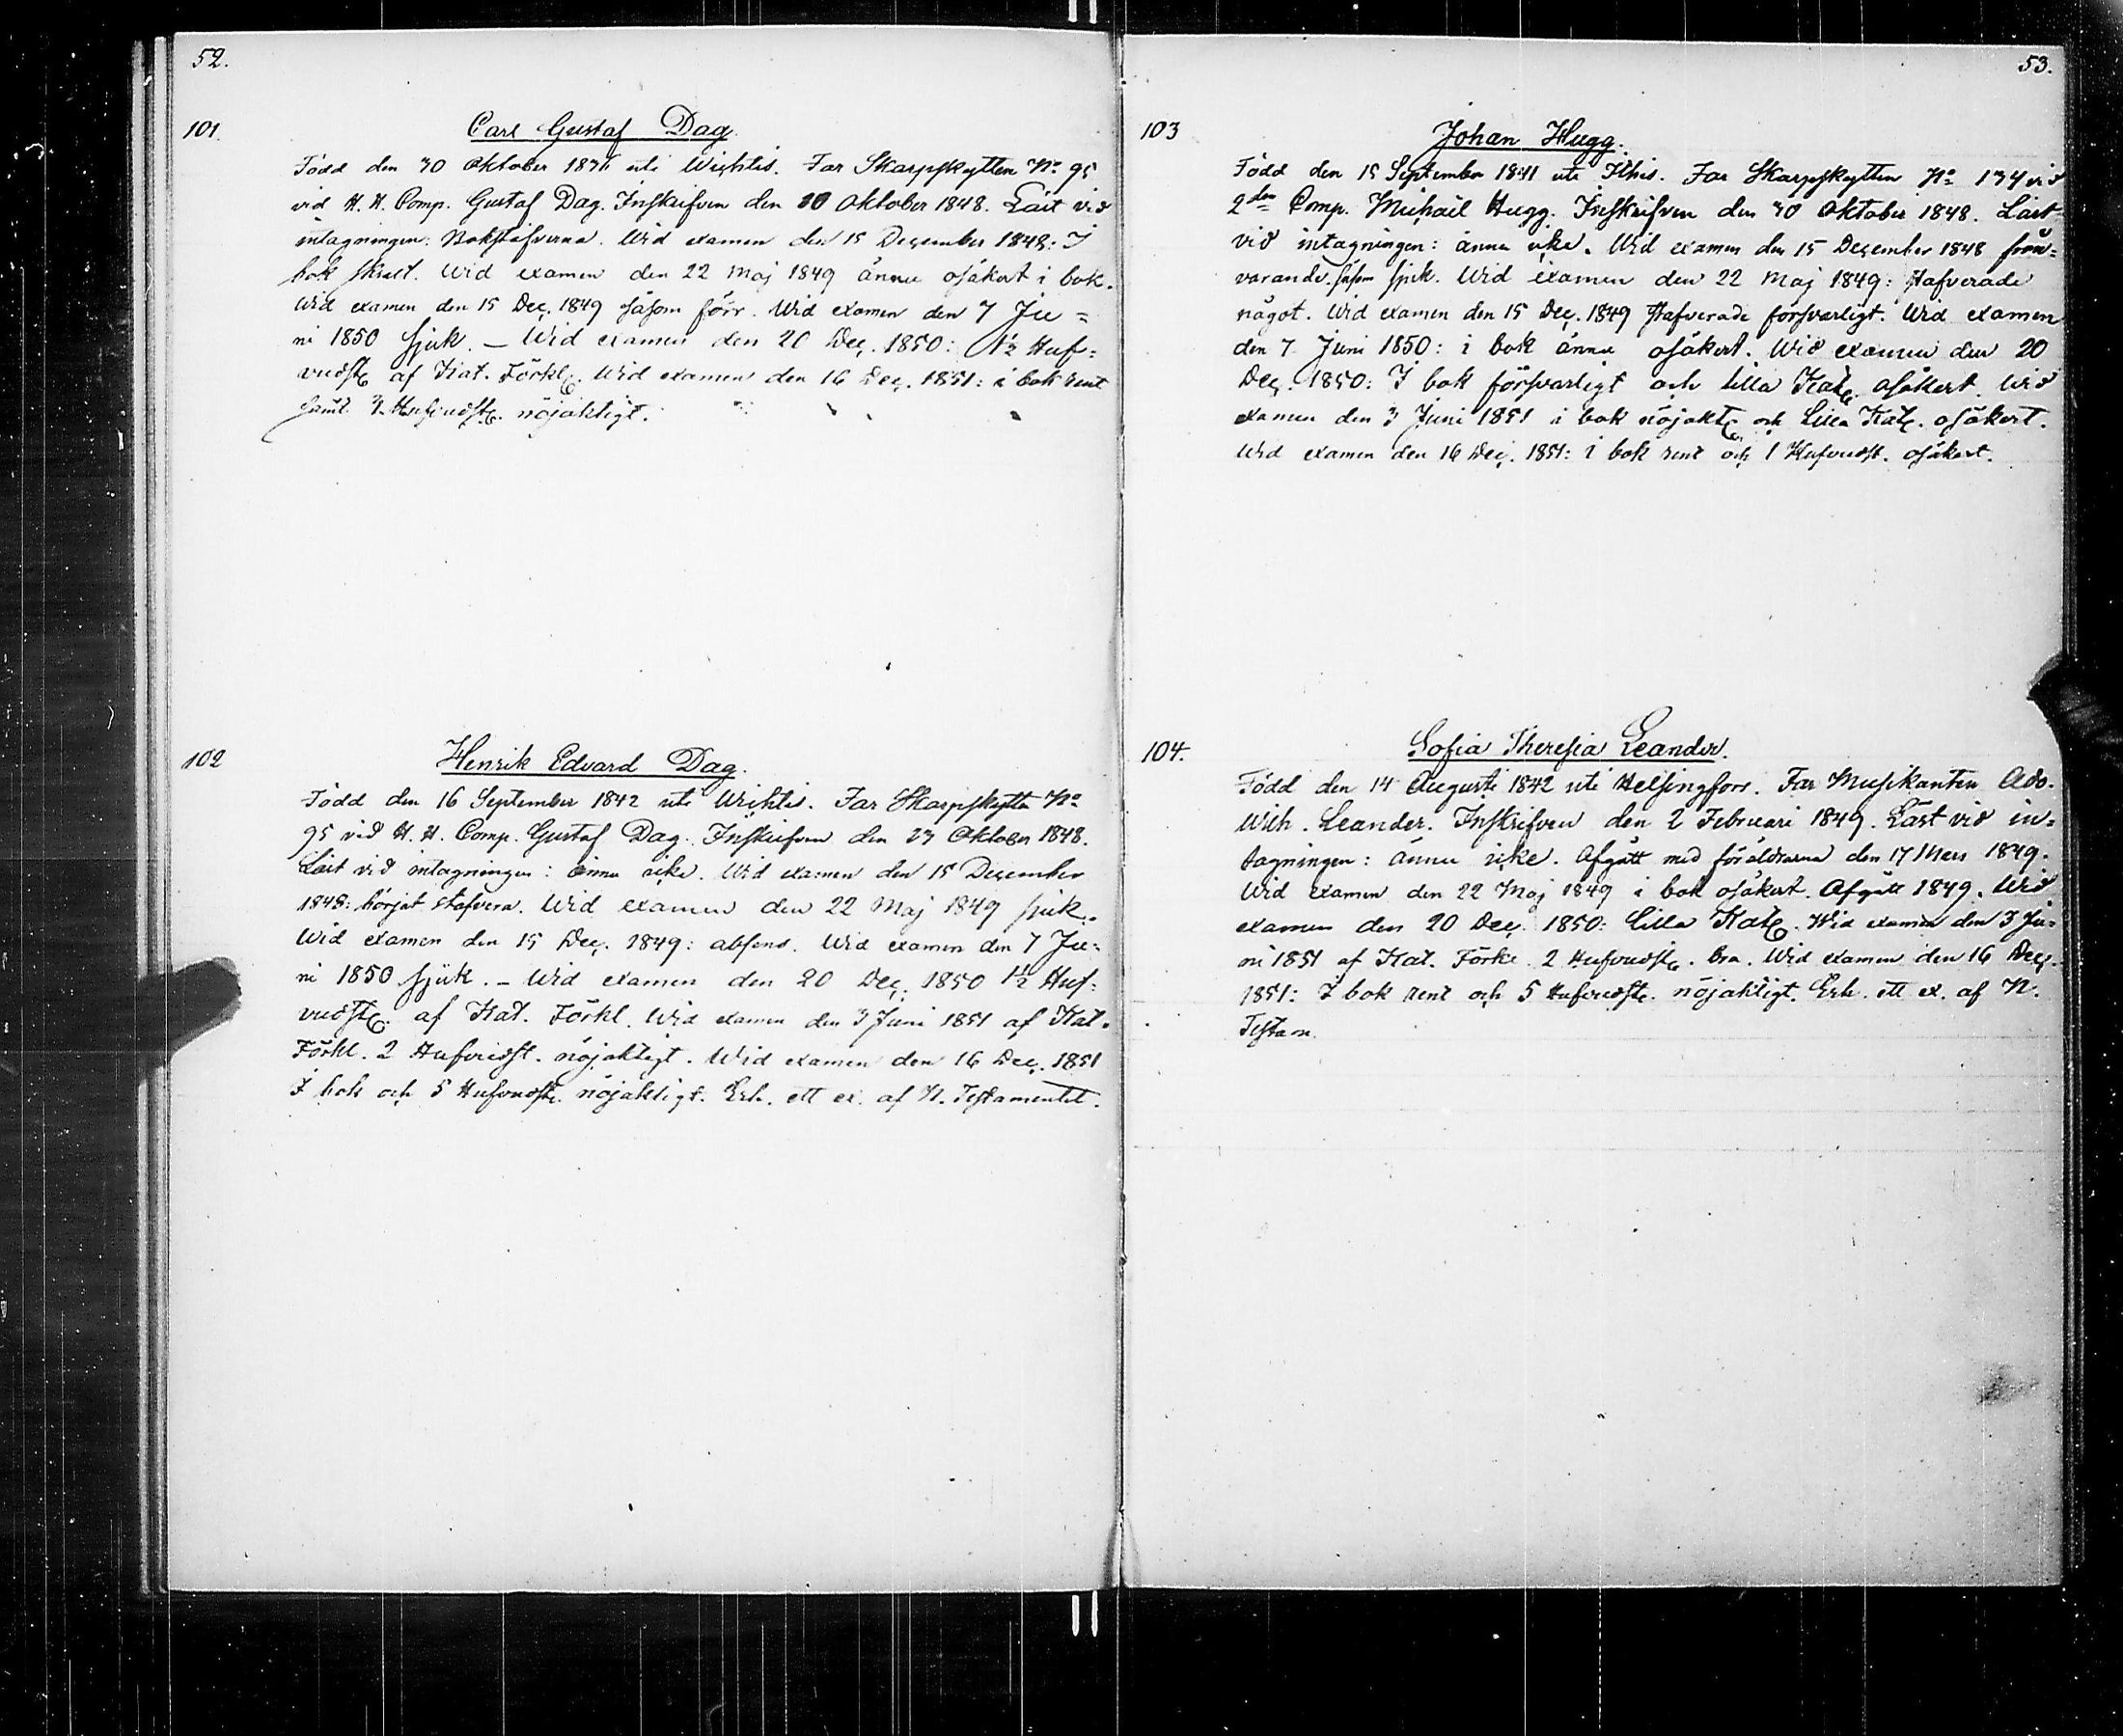 52.
101.
Carl Gustaf Dag.
Född den 30 Oktober 1836 uti Wichtis. Far Skarpskytten No 95
vid H. H. Comp. Gustaf Dag. Inskrifven den 30 Oktober 1848. Läst vid
intagningen: Bokstäfverna. Wid examen den 15 December 1848: I
bok skralt. Wid examen den 22 Maj 1849 ännu osäkert i bok.
Wid examen den 15 Dec. 1849 såsom förr. Wid examen den 7 Ju=
ni 1850 sjuk. — Wid examen den 20 Dec. 1850: 1½ Huf=
vudst. af Kat. Förkl. Wid examen den 16 Dec. 1851: i bok rent
samt Hufvudst. nöjaktigt.
102
Henrik Edvard Dag.
Född den 16 September 1842 uti Wichtis. Far Skarpskytten No
95 vid H. H. Comp. Gustaf Dag. Inskrifven den 23 Oktober 1848.
Läst vid intagningen: ännu icke. Wid examen den 15 December
1848: börjat stafvera. Wid examen den 22 Maj 1849 sjuk.
Wid examen den 15 Dec. 1849: absens. Wid examen den 7 Ju=
ni 1850 sjuk. — Wid examen den 20 Dec. 1850 1½ Huf=
vudst. af Kat. Förkl. Wid examen den 3 Juni 1851 af Kat.
Förkl. 2 Hufvudst. nöjaktigt. Wid examen den 16 Dec. 1851
I bok och 5 Hufvudst. nöjaktigt. Erh. ett ex. af N. Testamentet.
53.
103
Johan Hugg.
Född den 15 September 1841 uti Kthis. Far Skarpskytten No 134 vid
2dra Comp. Michail Hugg. Inskrifven den 30 Oktober 1848. Läst
vid intagningen: ännu icke. Wid examen den 15 December 1848 från=
varande såsom sjuk. Wid examen den 22 Maj 1849: stafverade
något. Wid examen den 15 Dec. 1849 stafverade försvarligt. Wid examen
den 7 Juni 1850: i bok ännu osäkert. Wid examen den 20
Dec. 1850: I bok försvarligt och lilla Kat. osäkert. Wid
examen den 3 Juni 1851 i bok nöjakt. och Lilla Kat. osäkert.
Wid examen den 16 Dec. 1851: i bok rent och 1 Hufvudst. osäkert.
104.
Sofia Theresia Leander.
Född den 14 Augusti 1842 uti Helsingfors. Far Musikanten Ado.
Wilh. Leander. Inskrifven den 2 Februari 1849. Läst vid in=
tagningen: ännu icke. Afgått med föräldrarna den 17 Mars 1849.
Wid examen den 22 Maj 1849 i bok osäkert. Afgått 1849. Wid
examen den 20 Dec. 1850: Lilla Kat. Wid examen den 3 Ju=
ni 1851 af Kat. Förkl. 2 Hufvudst. bra. Wid examen den 16 Dec.
1851: I bok rent och 5 Hufvudst. nöjaktigt. Erh. ett ex. af N.
Testam.